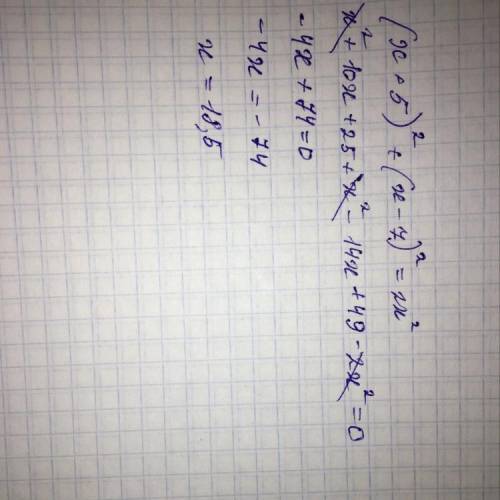 (x + 5)² + (x - 7)² = 2x²
x² + 10x + 25 + x² - 14x + 49 - 2x² = 0
-4x + 74 = 0
-4x = -74
x = 18,5